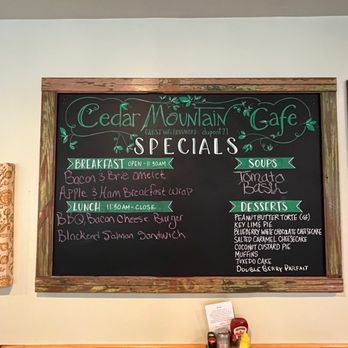 Cedar Mountain Cafe
GUEST WIFI PASSWORD: dupont21
SPECIALS
BREAKFAST OPEN - 11:30AM
Bacon & Brie omelet
Apple & Ham Breakfast Wrap
LUNCH 11:30AM - CLOSE
BBQ Bacon Cheese Burger
Blackend Salmon Sandwich
SOUPS
Tomato
Basil
DESSERTS
PEANUT BUTTER TORTE (GF)
KEY LIME PIE
BLUEBERRY WHITE CHOCOLATE CHEESECAKE
SALTED CARAMEL CHEESECAKE
COCONUT CUSTARD PIE
MUFFINS
TUXEDO CAKE
DOUBLE BERRY PARFAIT